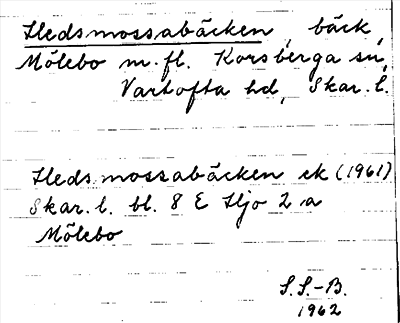 Hedsmossabäcken, bäck,
Mölebo m.fl. Korsberga sn,
Vartofta hd, Skar. l.
Hedsmossabäcken ek (1961)
Skar. l. bl. 8 E Hjo 2 a
Mölebo
S.S.-B.
1962